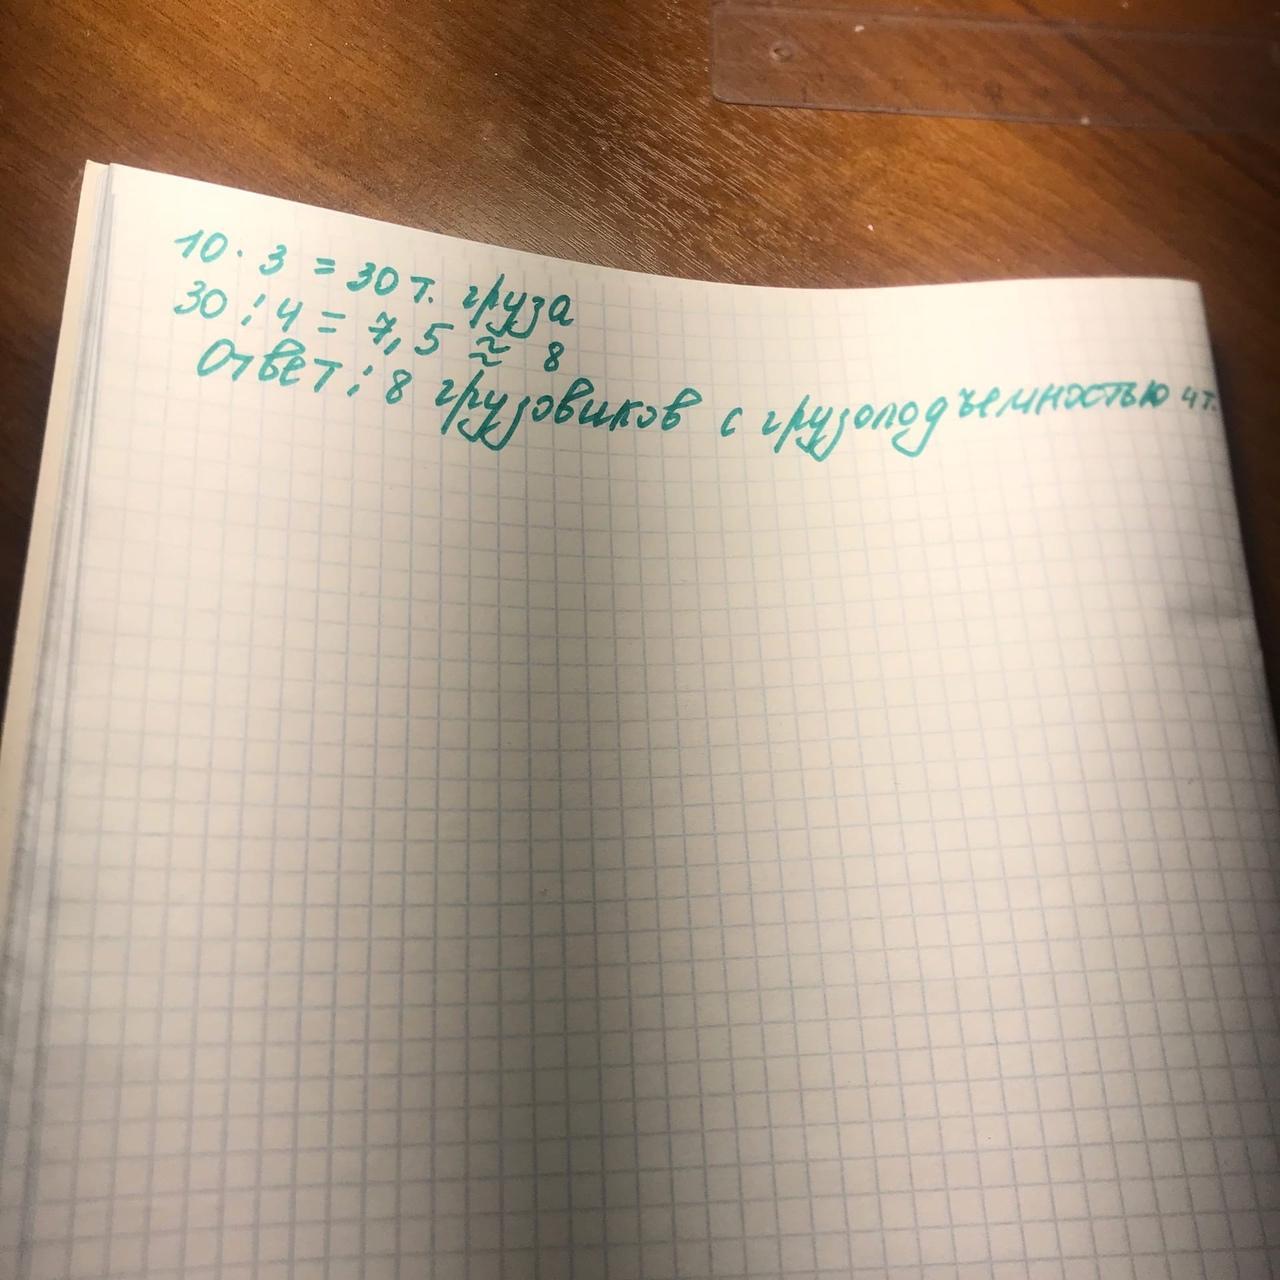 10 · 3 = 30 т. груза
30 : 4 = 7,5 ≈ 8
Ответ: 8 грузовиков с грузоподъемностью 4 т.